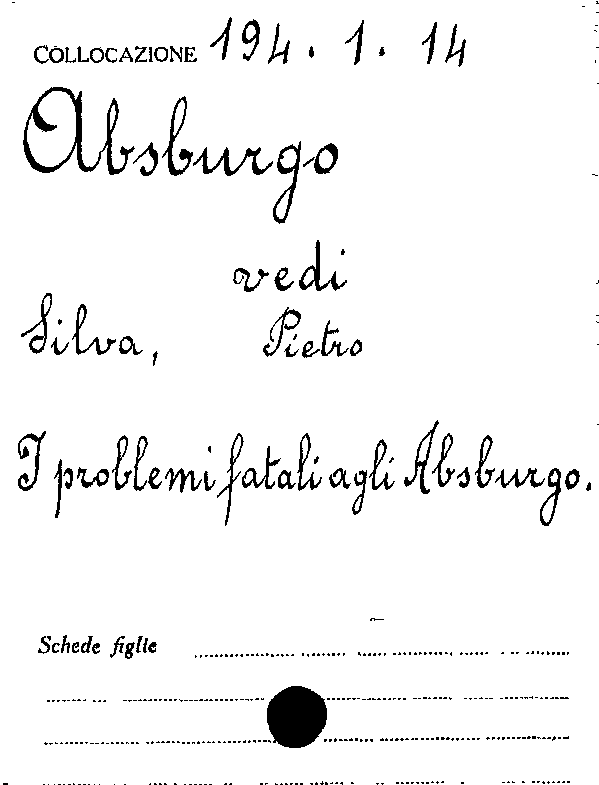 COLLOCAZIONE 194. 1. 14
Absburgo
vedi
Silva, Pietro
I problemi fatali agli Absburgo.
Schede figlie